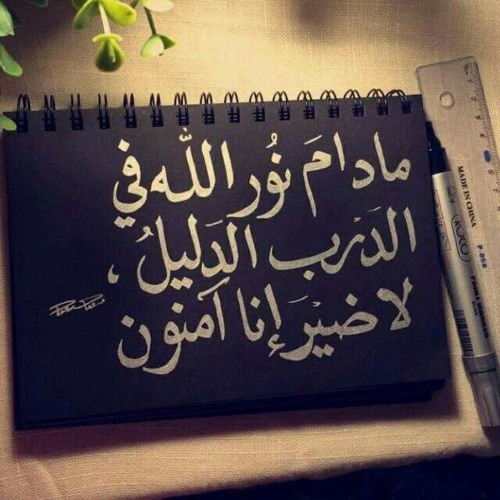 مادامَ نُور الله في
الدَرْب الدَليلُ ،
لا ضيْرَ إنا آمنون
MADE IN CHINA
P-058